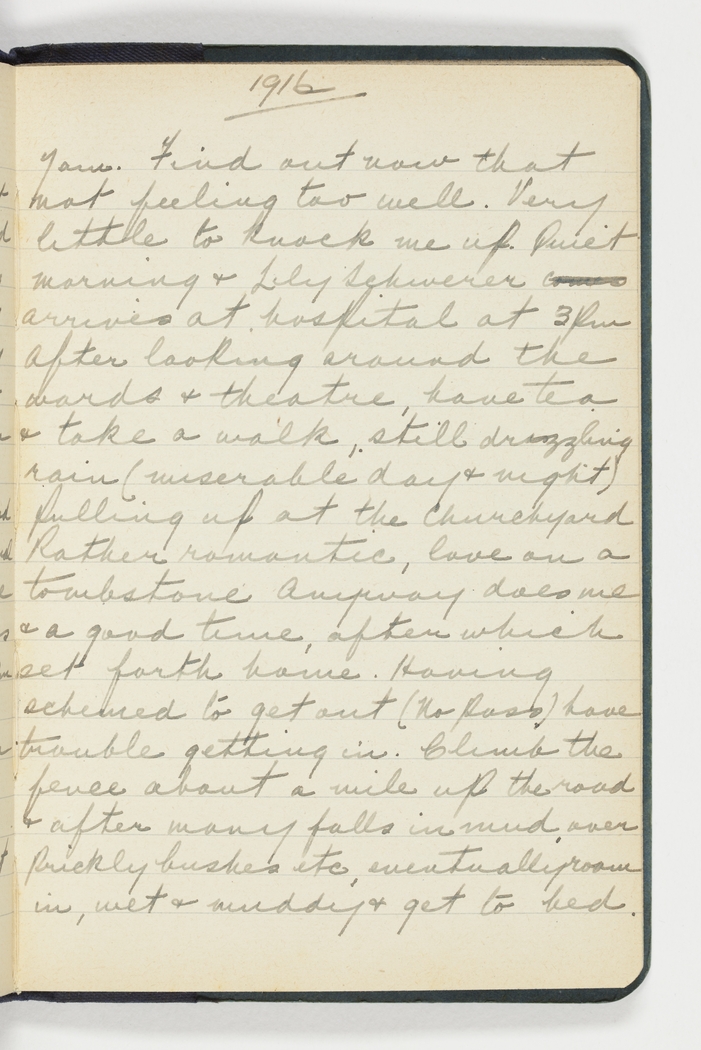 1916
Jam. Find out now that
not feeling too well. Very
little to knock me up. Quiet
morning & Lily Schwerer comes
arrives at hospital at 3 Pm
After looking around the
wards & theatre, have tea
& take a walk, still drizzling
rain (miserable day & night)
pulling up at the Churchyard
Rather romantic, love on a
tombstone Anyway does me
& a good time, after which
set forth home. Having
schemed to get out (No Pass) have
trouble getting in. Climb the
fence about a mile up the road
& after many falls in mud, over
Prickly bushes etc, eventually roam
in, wet & muddy & get to bed.